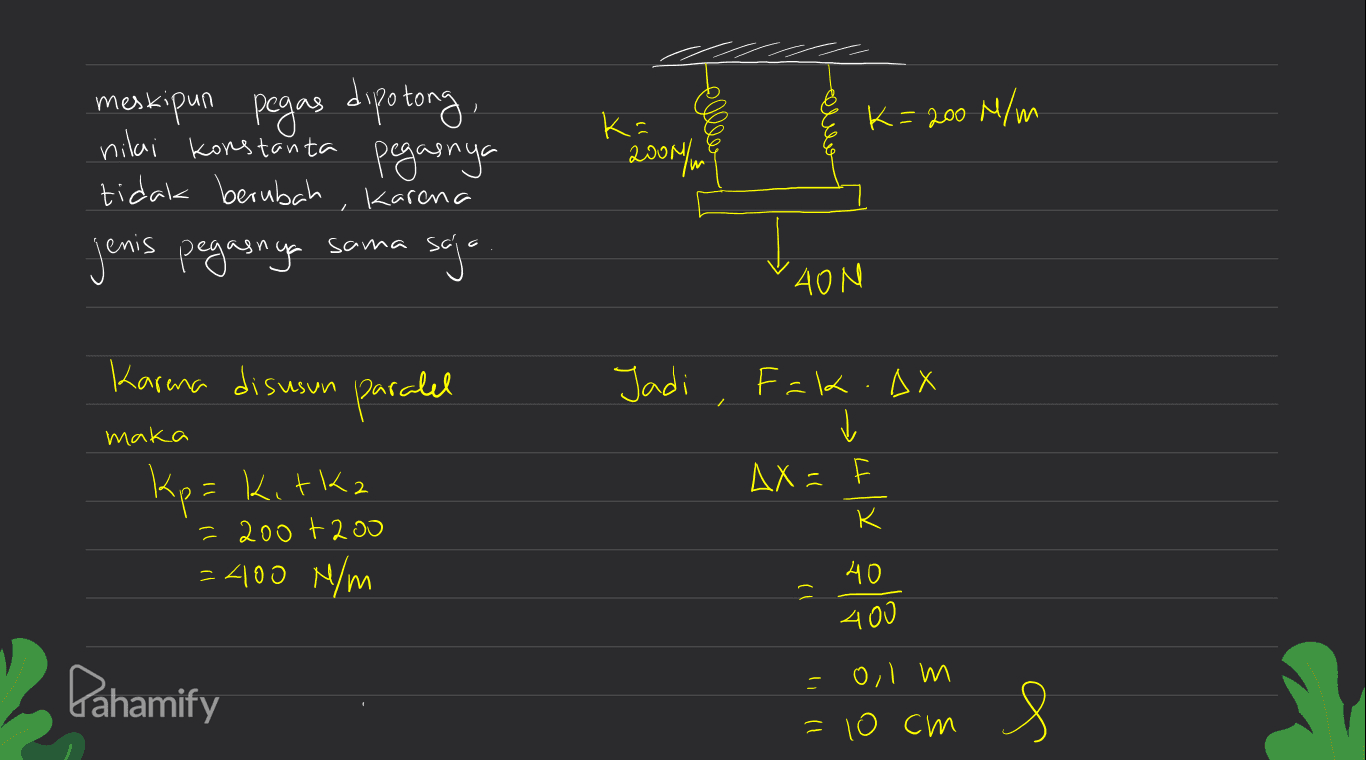 meskipun pegas dipotong,
nilai konstanta pegasnya
tidak berubah, karena
jenis pegasnya sama saja.
K=
200N/m
K = 200 N/m
40N
Karena disusun paralel
maka
Kp = K1 + K2
= 200 + 200
= 400 N/m
Jadi, F = K . ΔX
↓
ΔX = F
K
= 40
400
= 0,1 m
= 10 cm
Pahamify